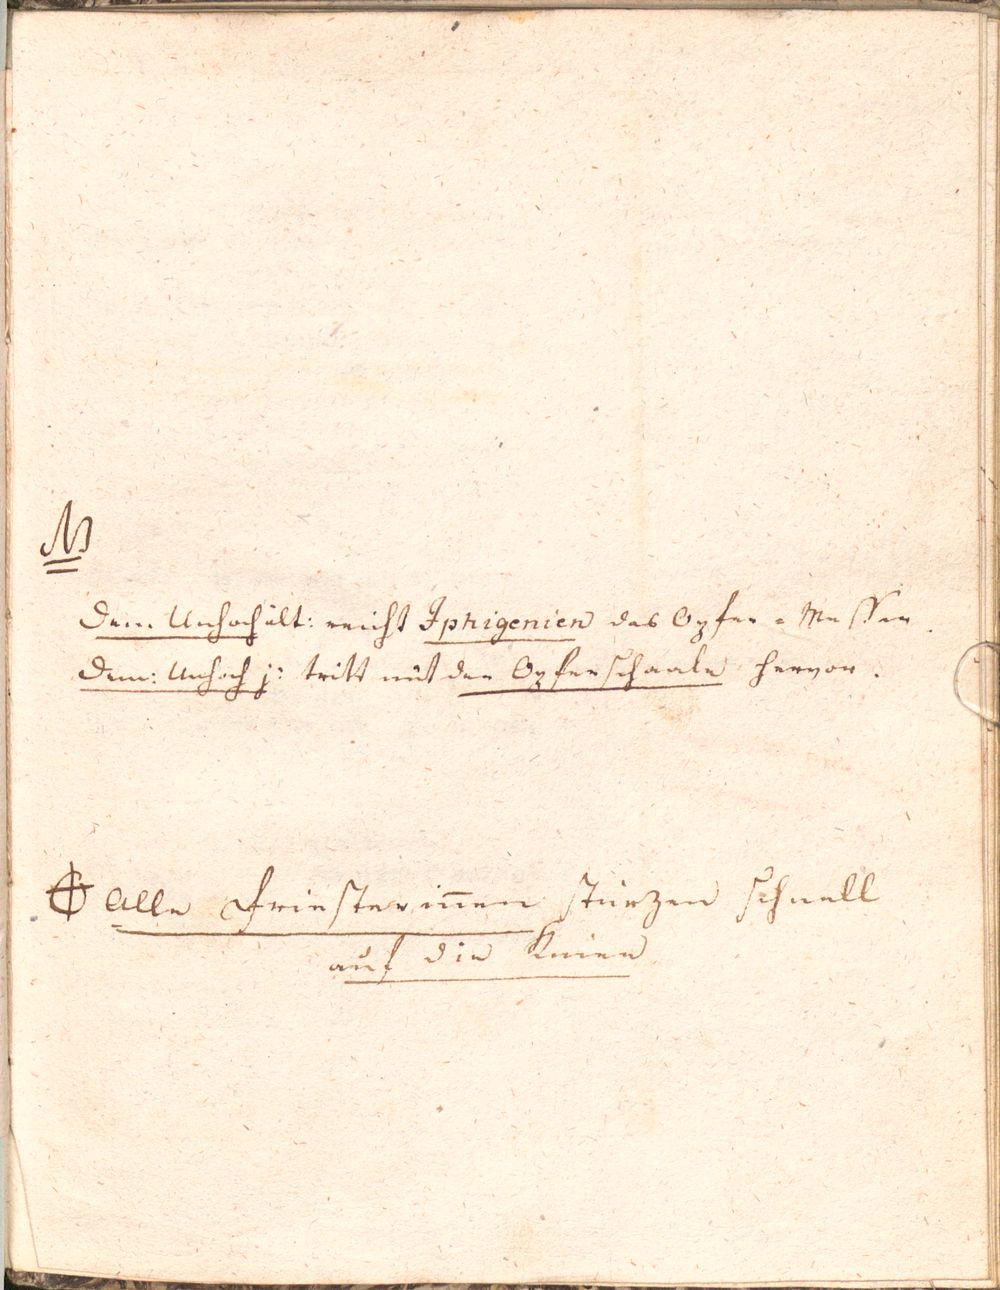 NB
Dem: Unhoch ält: reicht Iphigenien das Opfer = Messer.
Dem: Unhoch j: tritt mit der Opferschaale hervor.
Alle Priesterinnen stürzen schnell
auf die Knien